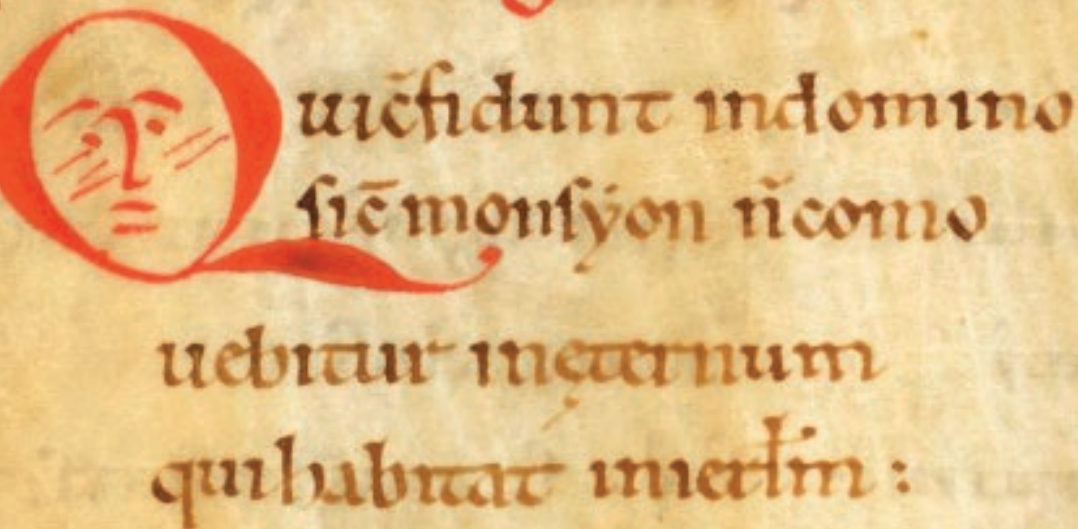 Quic̄fidunt indomino
sic̄ monsẏon n̄como
uebitur inęternum
quihabitat inierłm :